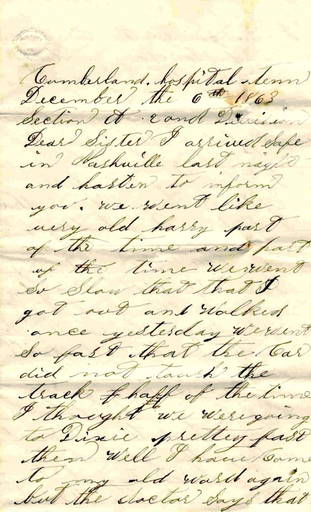 Cumberland. hospital tenn
December the 6th 1863
Section A 2 and Division
Dear Sister I arrived safe
in Nashville last night
and hasten to inform
you. we went like
very old harry part
of the time and part
of the time we went
so slow that that I
got out and walked
once yesterday we went
so fast that the Car
did not touch the
track haff of the time
I thought we were going
to Dixie pretty fast
then well I have Come
to my old ward again
but the doctor says that